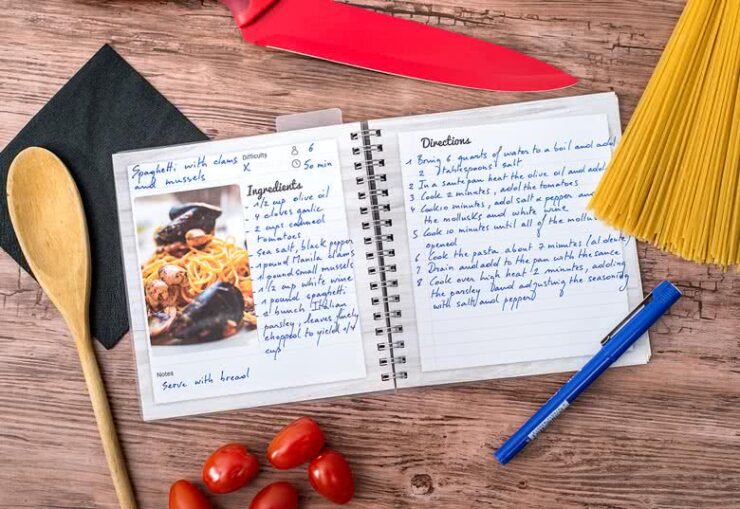 Spaghetti with clams
and mussels
Difficulty
X
6
50 min
Ingredients
- 1/2 cup olive oil
- 4 cloves garlic
- 2 cups canned
tomatoes
- Sea salt, black pepper
- 1 pound Manila clams
- 1 pound small mussels
- 1/2 cup white wine
- 1 pound spaghetti
- 1 bunch Italian
parsley, leaves finely
chopped to yield 1/4
cup
Notes
Serve with bread
Directions
1 Bring 6 quarts of water to a boil and add
2 tablespoons salt
2 In a saute pan heat the olive oil and add
3 Cook 2 minutes, add the tomatoes
4 Cook 10 minutes, add salt & pepper and
the mollucks and white wine
5 Cook 10 minutes until all of the mollu
opened
6 Cook the pasta about 7 minutes (al dente)
7 Drain and add to the pan with the sauce
8 Cook over high heat 2 minutes, adding
the parsley and adjusting the seasoning
with salt and pepper